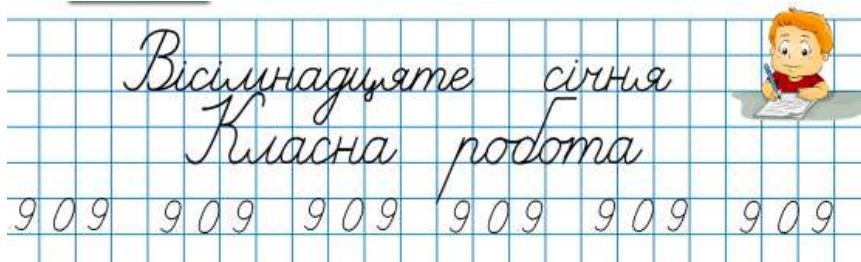 Вісімнадцяте січня
Класна робота
909 909 909 909 909 909